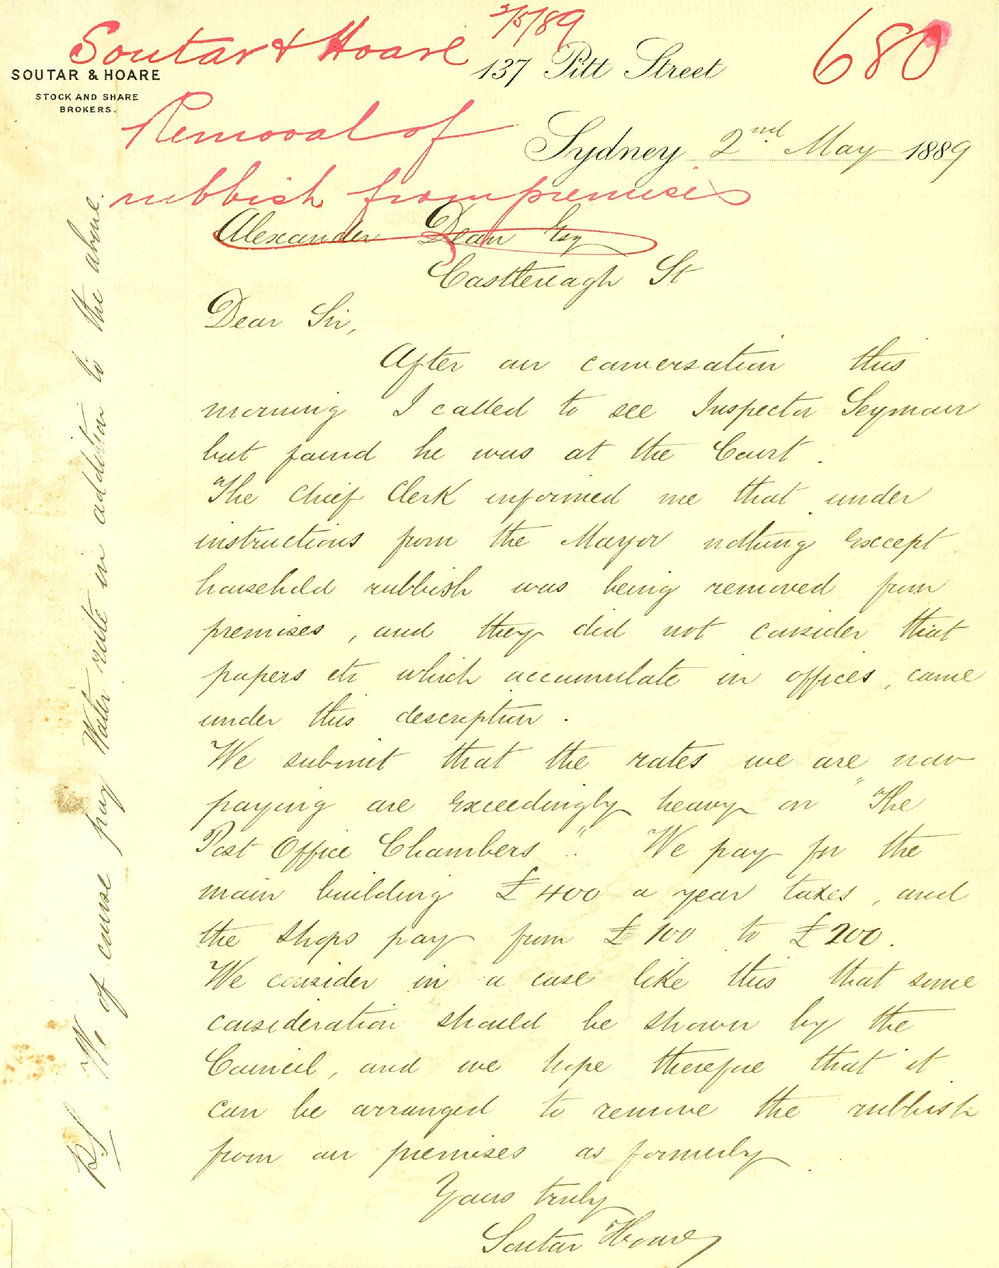 Soutar & Hoare
2/5/89
680
SOUTAR & HOARE
STOCK AND SHARE
BROKERS.
137 Pitt Street
Removal of
rubbish from premises
Sydney 2nd May 1889
Alexander Dean Esq
Castlereagh St
Dear Sir,
After our conversation this
morning I called to see Inspector Seymour
but found he was at the Court.
The Chief Clerk informed me that under
instructions from the Mayor nothing except
household rubbish was being removed from
premises, and they did not consider that
papers etc which accumulate in offices, came
under this description.
We submit that the rates we are now
paying are exceedingly heavy on "The
Post Office Chambers". We pay for the
main building £400 a year taxes, and
the shops pay from £100 to £200.
We consider in a case like this that some
consideration should be shown by the
Council, and we hope therefore that it
can be arranged to remove the rubbish
from our premises as formerly.
Yours truly
Soutar Hoare
PS We of course pay Water rate in addition to the above.